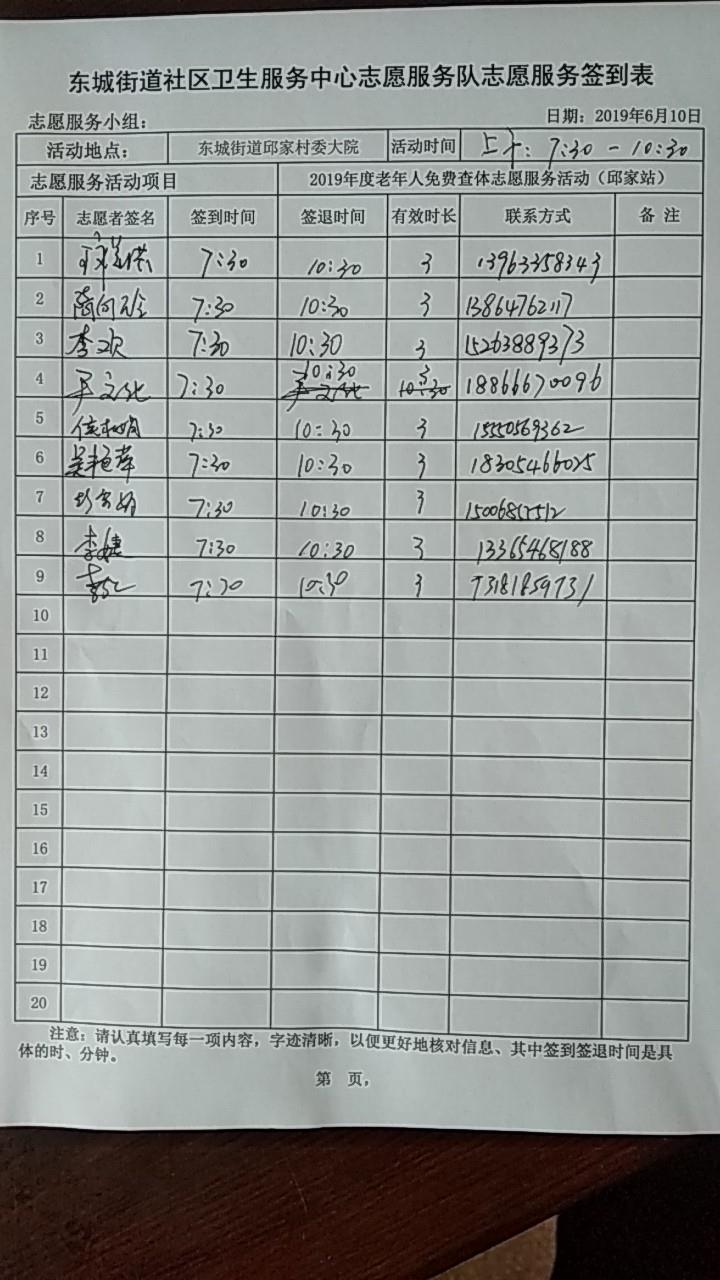 东城街道社区卫生服务中心志愿服务队志愿服务签到表
志愿服务小组： 日期：2019年6月10日
活动地点： 东城街道邱家村委大院 活动时间 上午：7:30 - 10:30
志愿服务活动项目 2019年度老年人免费查体志愿服务活动（邱家站）
序号 志愿者签名 签到时间 签退时间 有效时长 联系方式 备 注
1 7:30 10:30 3 13963358343
2 7:30 10:30 3
3 李欢 7:30 10:30 3 15263889373
4 7:30 10:30 3 18866670096
5 7:30 10:30 3 15550569362
6 7:30 10:30 3 18305466025
7 7:30 10:30 3
8 李婕 7:30 10:30 3 13365468188
9 7:30 10:30 3
10
11
12
13
14
15
16
17
18
19
20
注意：请认真填写每一项内容，字迹清晰，以便更好地核对信息、其中签到签退时间是具
体的时、分钟。
第 页，